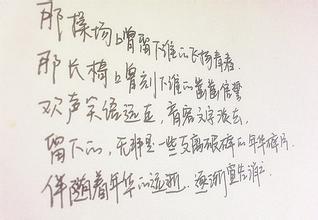 那操场上曾留下谁的飞扬青春.
那长椅上曾刻下谁的凿凿信誓
欢声笑语远在,青春文字淡去,
留下的,无非是一些支离破碎的年华碎片.
伴随着年华的远逝.逐渐宣告消亡.